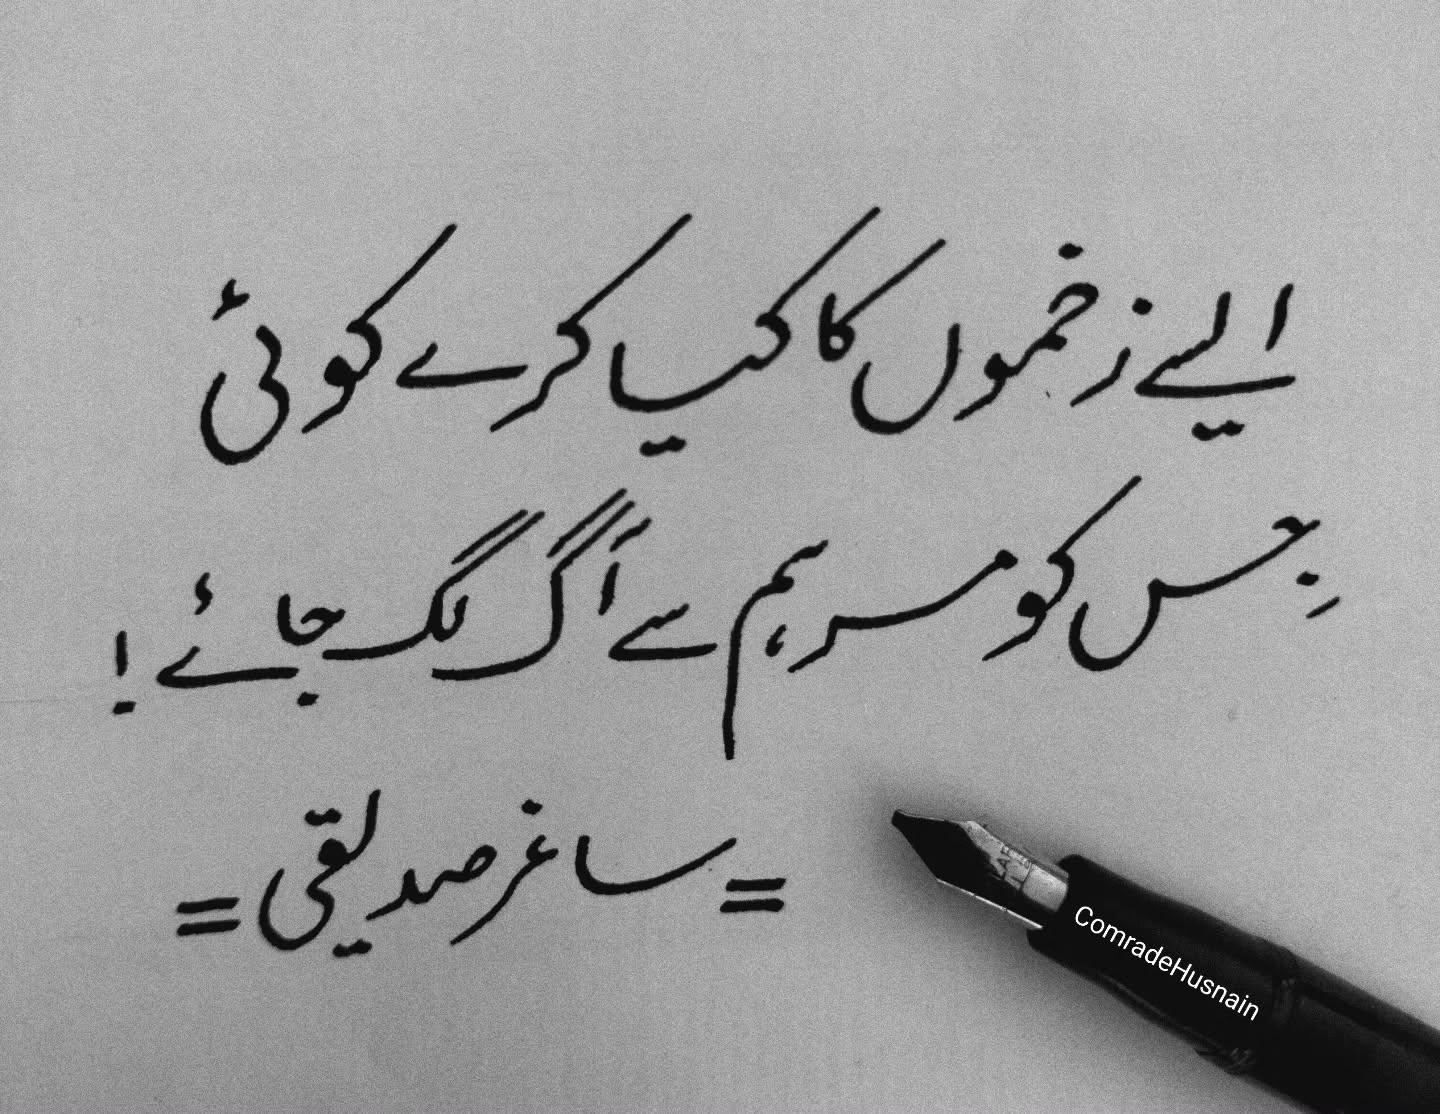 ایسے زخموں کا کیا کرے کوئی
جِس کو مرہم سے آگ لگ جائے !
= ساغر صدیقی =
ComradeHusnain